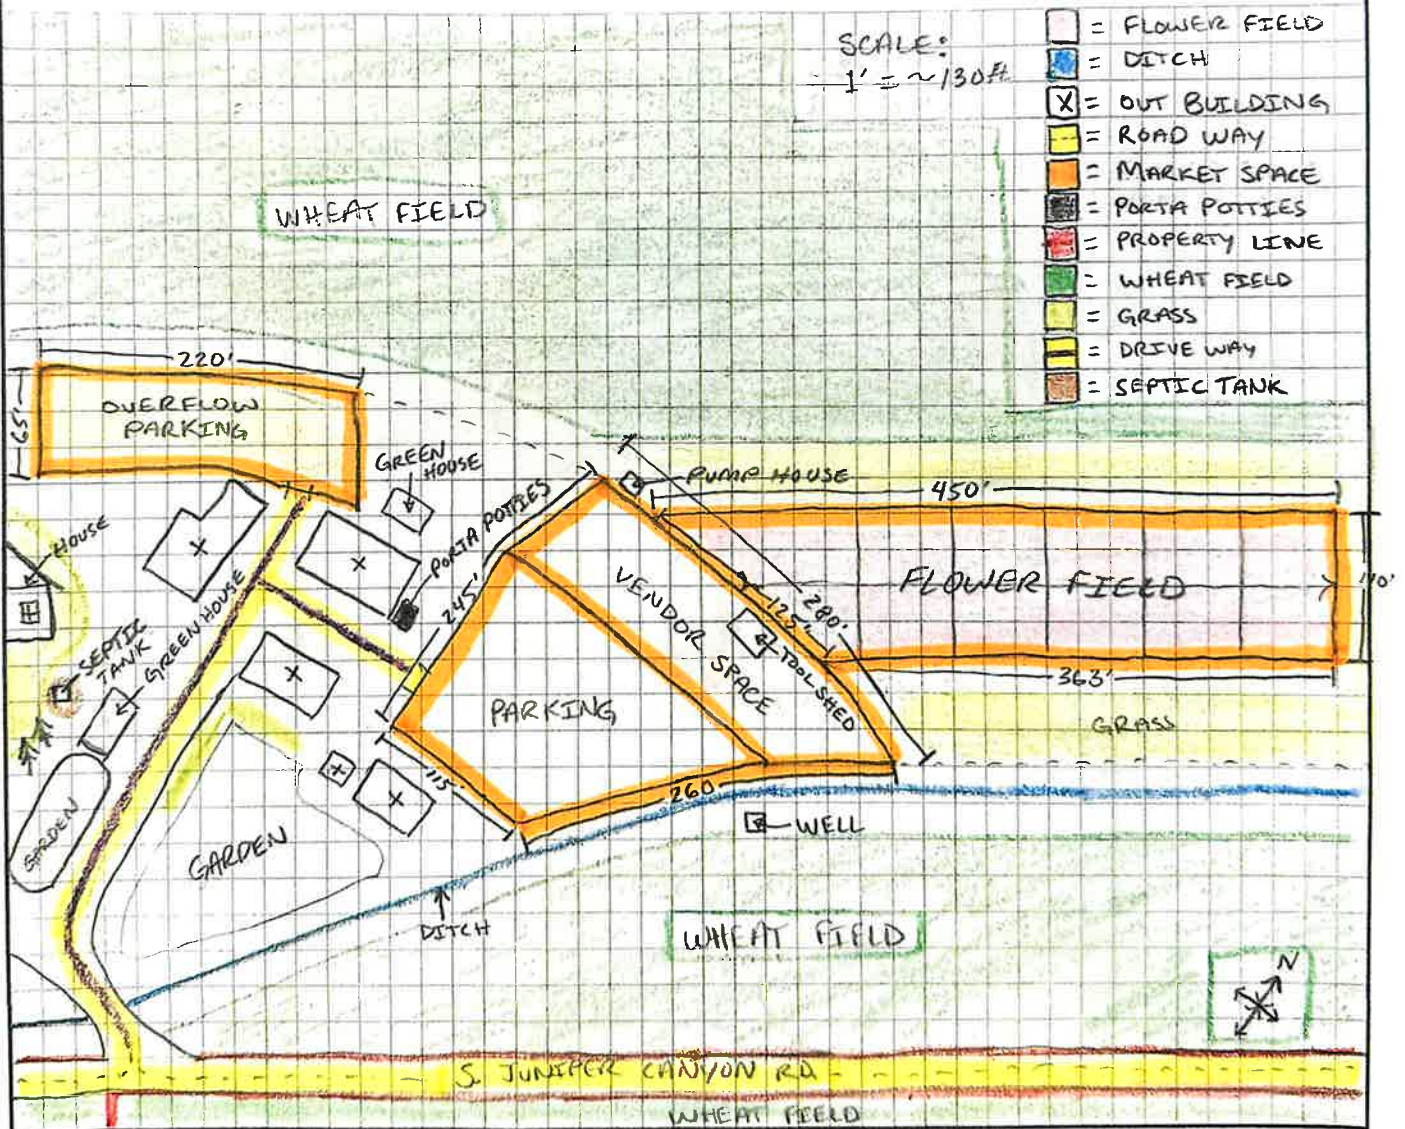 SCALE:
1' = ~130ft
= FLOWER FIELD
= DITCH
X = OUT BUILDING
= ROAD WAY
= MARKET SPACE
= PORTA POTTIES
= PROPERTY LINE
= WHEAT FIELD
= GRASS
= DRIVE WAY
= SEPTIC TANK
WHEAT FIELD
220'
65'
OVERFLOW
PARKING
GREEN
HOUSE
PORTA POTTIES
PUMP HOUSE
450'
HOUSE
X
X
245'
VENDOR SPACE
125'
280'
FLOWER FIELD
TOOL SHED
363'
SEPTIC
TANK
GREEN HOUSE
X
PARKING
GRASS
115'
260
X
X
WELL
GARDEN
GARDEN
DITCH
WHEAT FIELD
N
S. JUNIPER CANYON RD
WHEAT FIELD